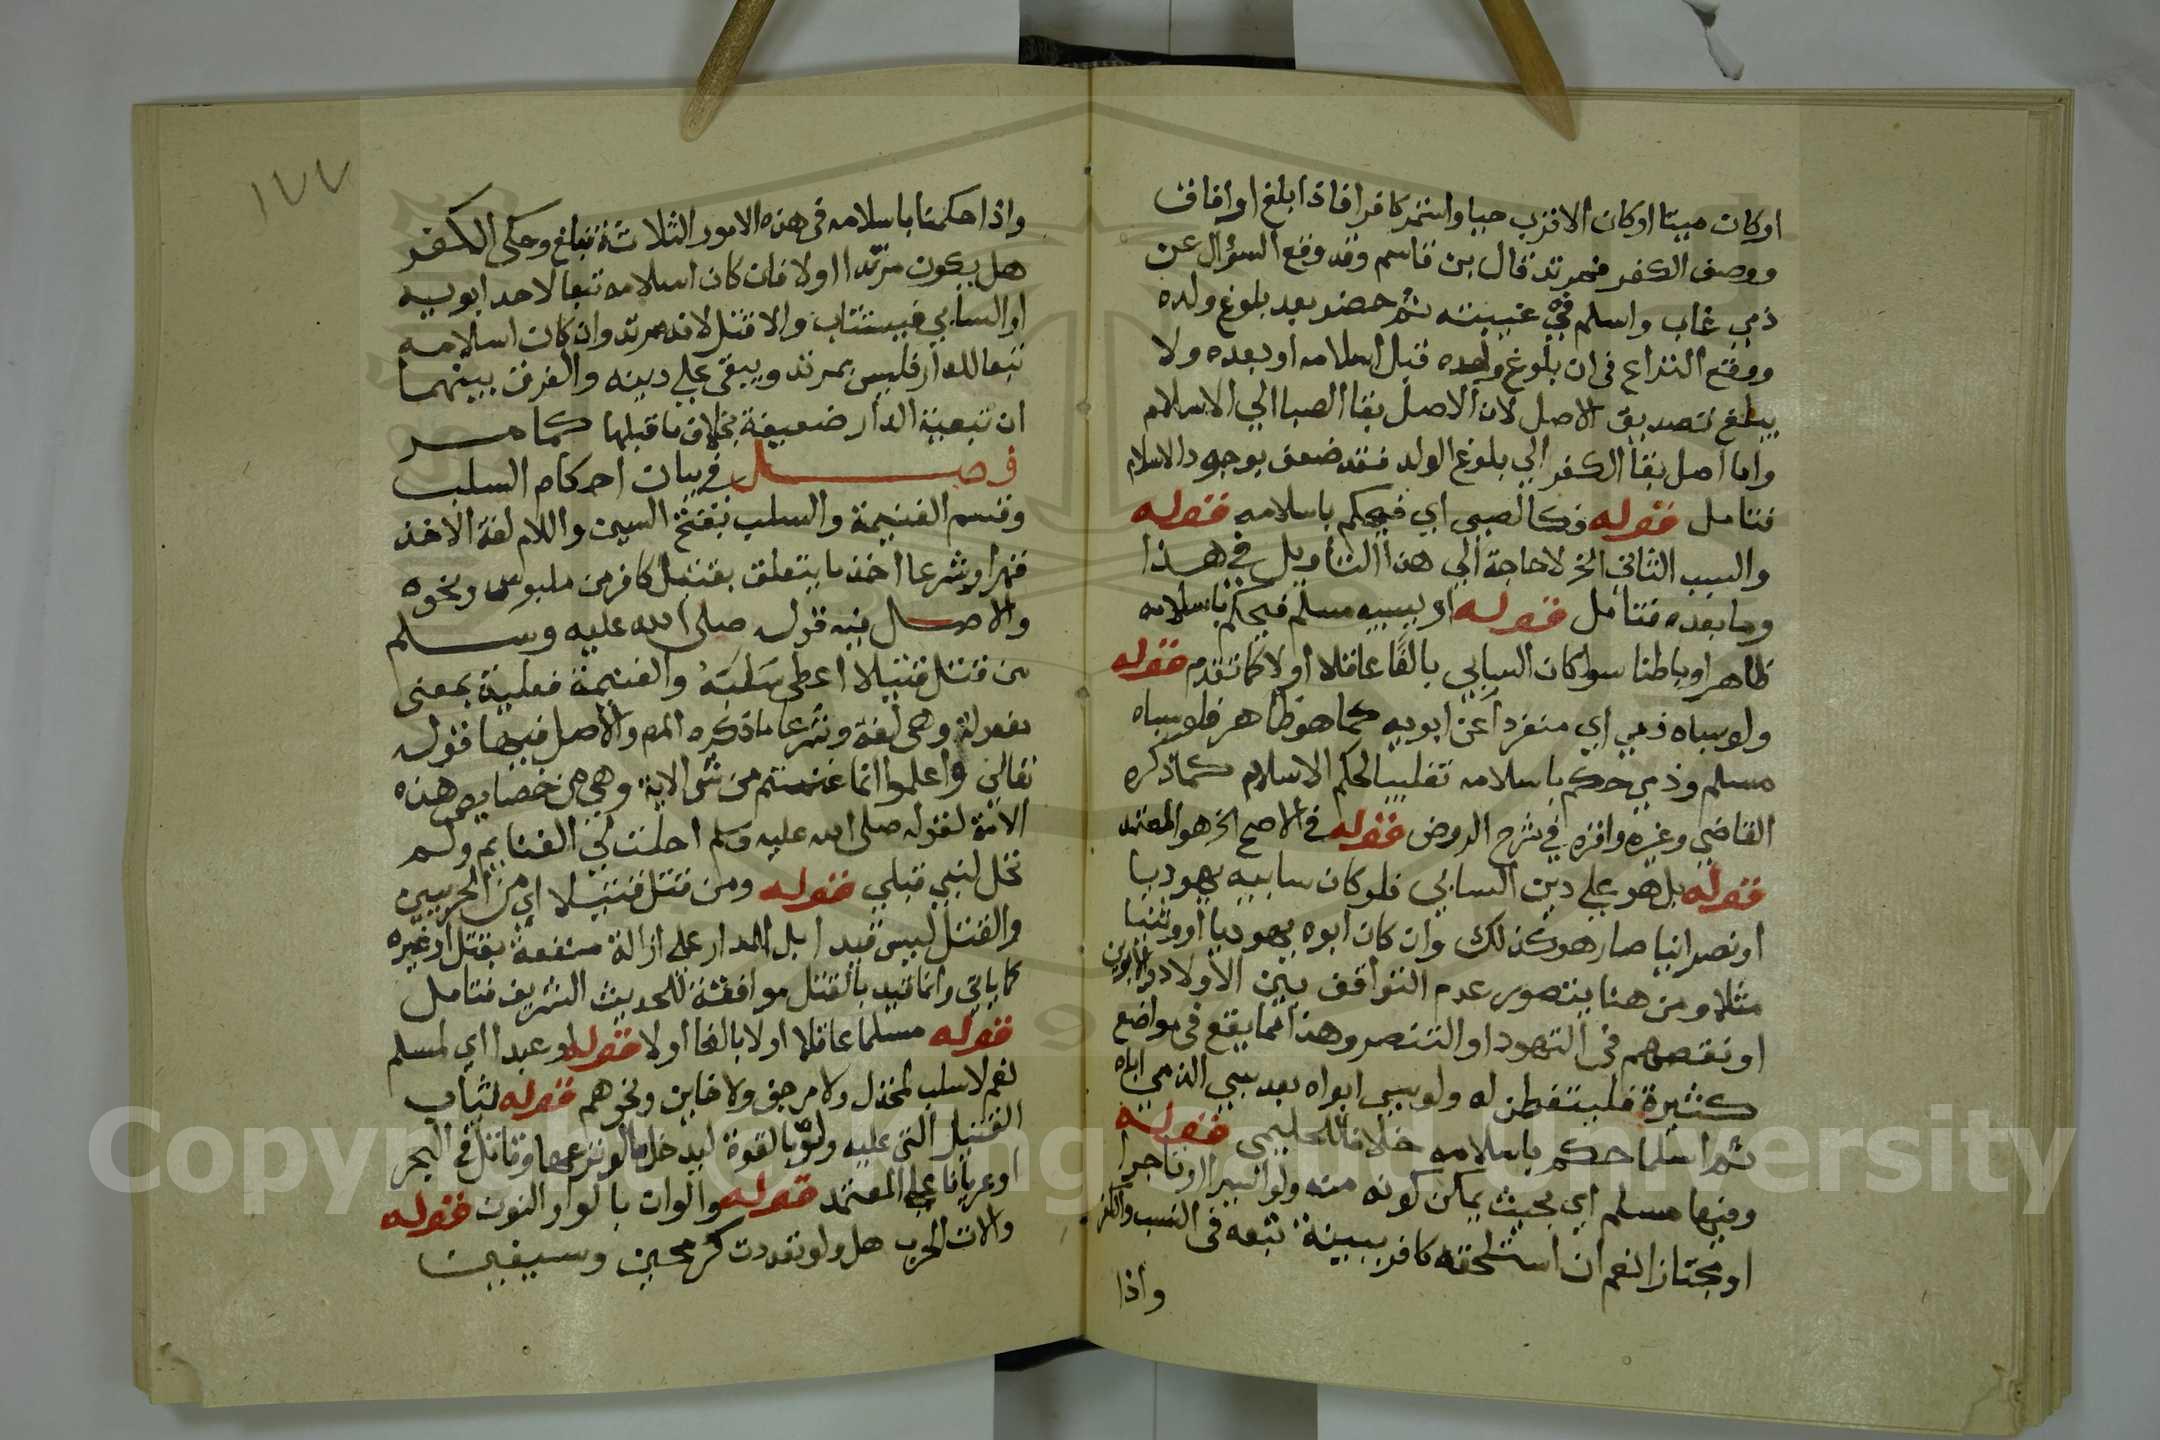 اوكان ميتا اوكان الاقرب حيا واستمر كافرا فاذا بلغ او افاق
ووصف الكفر فمرتد قال بن قاسم وقد وقع السؤال عن
ذمي غاب واسلم في غيبته ثم حضر بعد بلوغ ولده
ووقع النزاع في ان بلوغ ولده قبل اسلامه او بعده ولا
تصديق الاصل لان الاصل بقا الصبا الي الاسلام
واما اصل بقا الكفر الي بلوغ الولد فقد ضعف بوجود الاسلام
فتامل قوله فكالصبي اي فيحكم باسلامه قوله
والسبب الثاني الخ لا حاجة الي هذا التاويل في هذا
وما بعده فتامل قوله او يسبيه مسلم فيحكم باسلامه
ظاهرا وباطنا سوا كان السابي بالغا عاقلا اولا كما تقدم قوله
ولو سباه ذمي اي منفردا عن ابويه كما هو ظاهر فلو سباه
مسلم وذمي حكم باسلامه تغليبا لحكم الاسلام كما ذكره
القاضي وغيره واقره في شرح الروض قوله في الاصح الخ هو المعتمد
قوله بل هو علي دين السابي فلو كان سابيه يهوديا
او نصرانيا صار هو كذلك وان كان ابوه يهوديا او وثنيا
مثلا ومن هنا يتصور عدم التوافق بين الاولاد والابوين
او نقصهم في التهود او التنصر وهذا مما يقع في مواضع
كثيرة فليتفطن له ولو سبي ابواه بعد سبي الذمي اياه
ثم اسلما حكم باسلامه خلافا للحليمي قوله
وفيها مسلم اي بحيث يمكن كونه منه ولو اسيرا او تاجرا
او مجتازا نعم ان استلحقه كافر ببينة تبعه في النسب والكفر
واذا
١٧٧
واذا حكمنا باسلامه في هذه الامور الثلاثة فبلغ وحكى الكفر
هل يكون مرتدا اولا فان كان اسلامه تبعا لاحد ابويه
او السابي فيستتاب والا قتل لانه مرتد وان كان اسلامه
تبعا للدار فليس بمرتد ويبقى علي دينه والفرق بينهما
ان تبعية الدار ضعيفة بخلاف ما قبلها كما مر
فصل في بيان احكام السلب
وقسم الغنيمة والسلب بفتح السين واللام لغة الاخذ
قهرا وشرعا اخذ ما يتعلق بقتيل كافر من ملبوس ونحوه
والاصل فيه قوله صلى الله عليه وسلم
من قتل قتيلا اعطى سَلَبَهُ والغنيمة فعيلة بمعنى
مفعولة وهى لغة وشرعا ما ذكره المص والاصل فيها قوله
تعالي واعلموا انما غنمتم من شى الاية وهي من خصايص هذه
الامة لقوله صلى الله عليه وسلم احلت لي الغنايم ولم
تحل لنبي قبلي قوله ومن قتل قتيلا اي من الحربيين
والقتل ليس قيدا بل المدار على ازالة منفعة بقتل او غيره
كما ياتي وانما قيد بالقتل موافقة للحديث الشريف فتامل
قوله مسلما عاقلا اولا بالغا اولا قوله او عبدا اي لمسلم
نعم لا سلب لمخذل ولا مرجف ولا خاين ونحوهم قوله ثياب
القتيل التي عليه ولو بالقوة ليدخل ما لو نزعها وقاتل في البحر
او عريانا علي المعتمد قوله والوان بالواو النون قوله
والات الحرب هل ولو تعددت كرمحين وسيفين